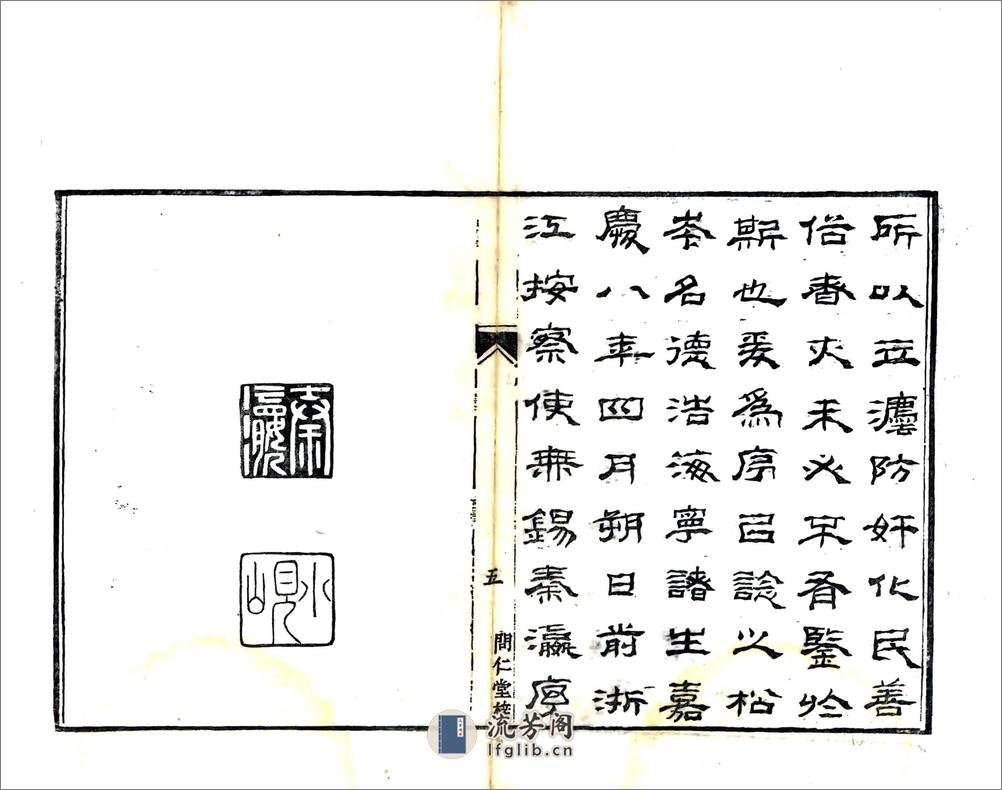 所以立灋防奸化民善
俗者亦未必不有鑒於
斯也爰爲序㠯諗之松
岑名德浩海寧諸生嘉
慶八年四月朔日前浙
江按察使無錫秦瀛序
五
間仁堂校
秦瀛
小峴
流芳阁
lfglib.cn